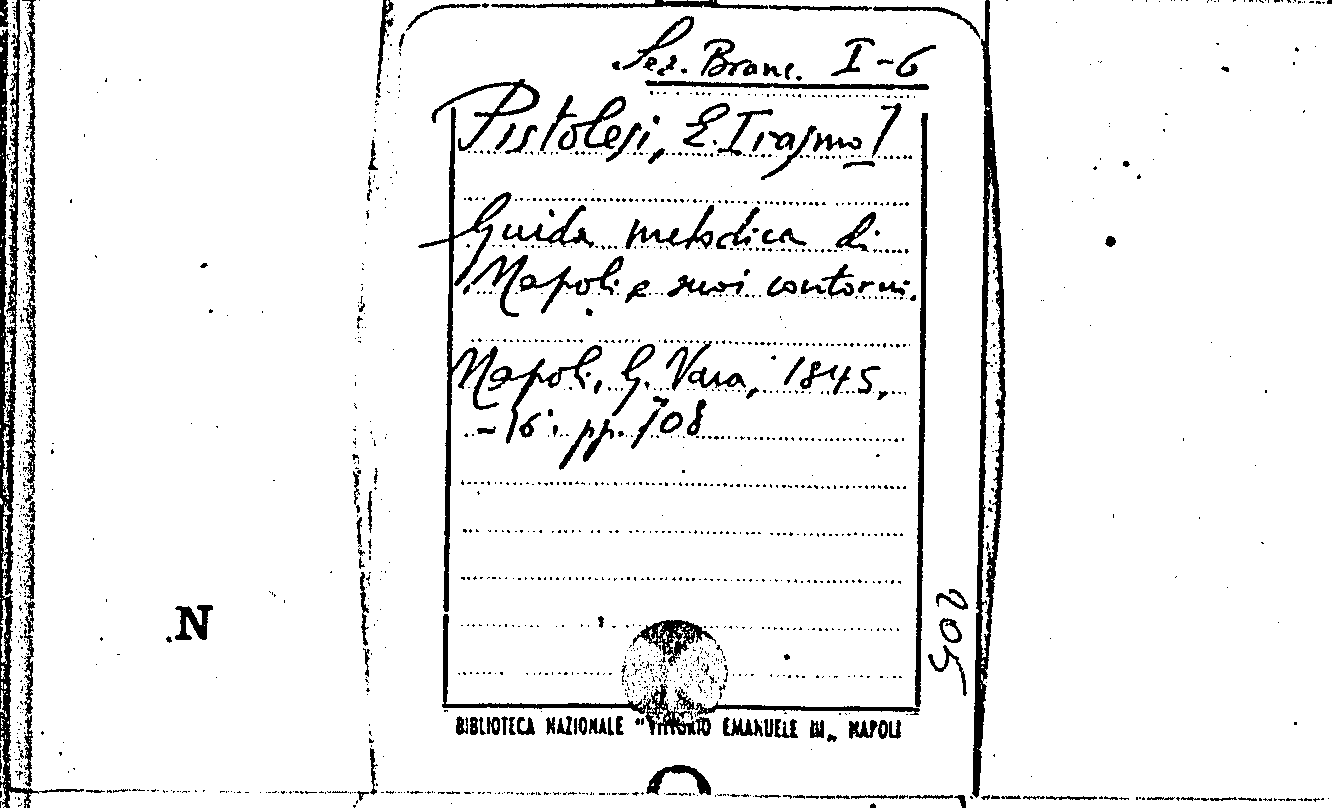 Sez. Branc. I-6
Pistolesi, E. Irasmo]
Guida metodica di
Napoli e suoi contorni.
Napoli, G. Vara, 1845,
-16°. pp. 708
205
N
BIBLIOTECA NAZIONALE "VITTORIO EMANUELE III„ NAPOLI